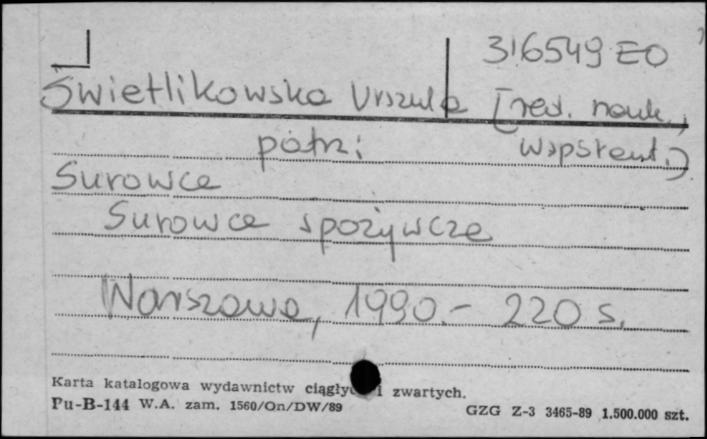 316549 EO
Świetlikowska Urszula [red. nauk.,
patrz: współaut.)
Surowce
Surowce spożywcze
Warszawa, 1990.- 220 s.
Karta katalogowa wydawnictw i zwartych.
Pu-B-144 W.A. zam. 1560/On/DW/89 GZG Z-3 3465-89 1.500.000 szt.